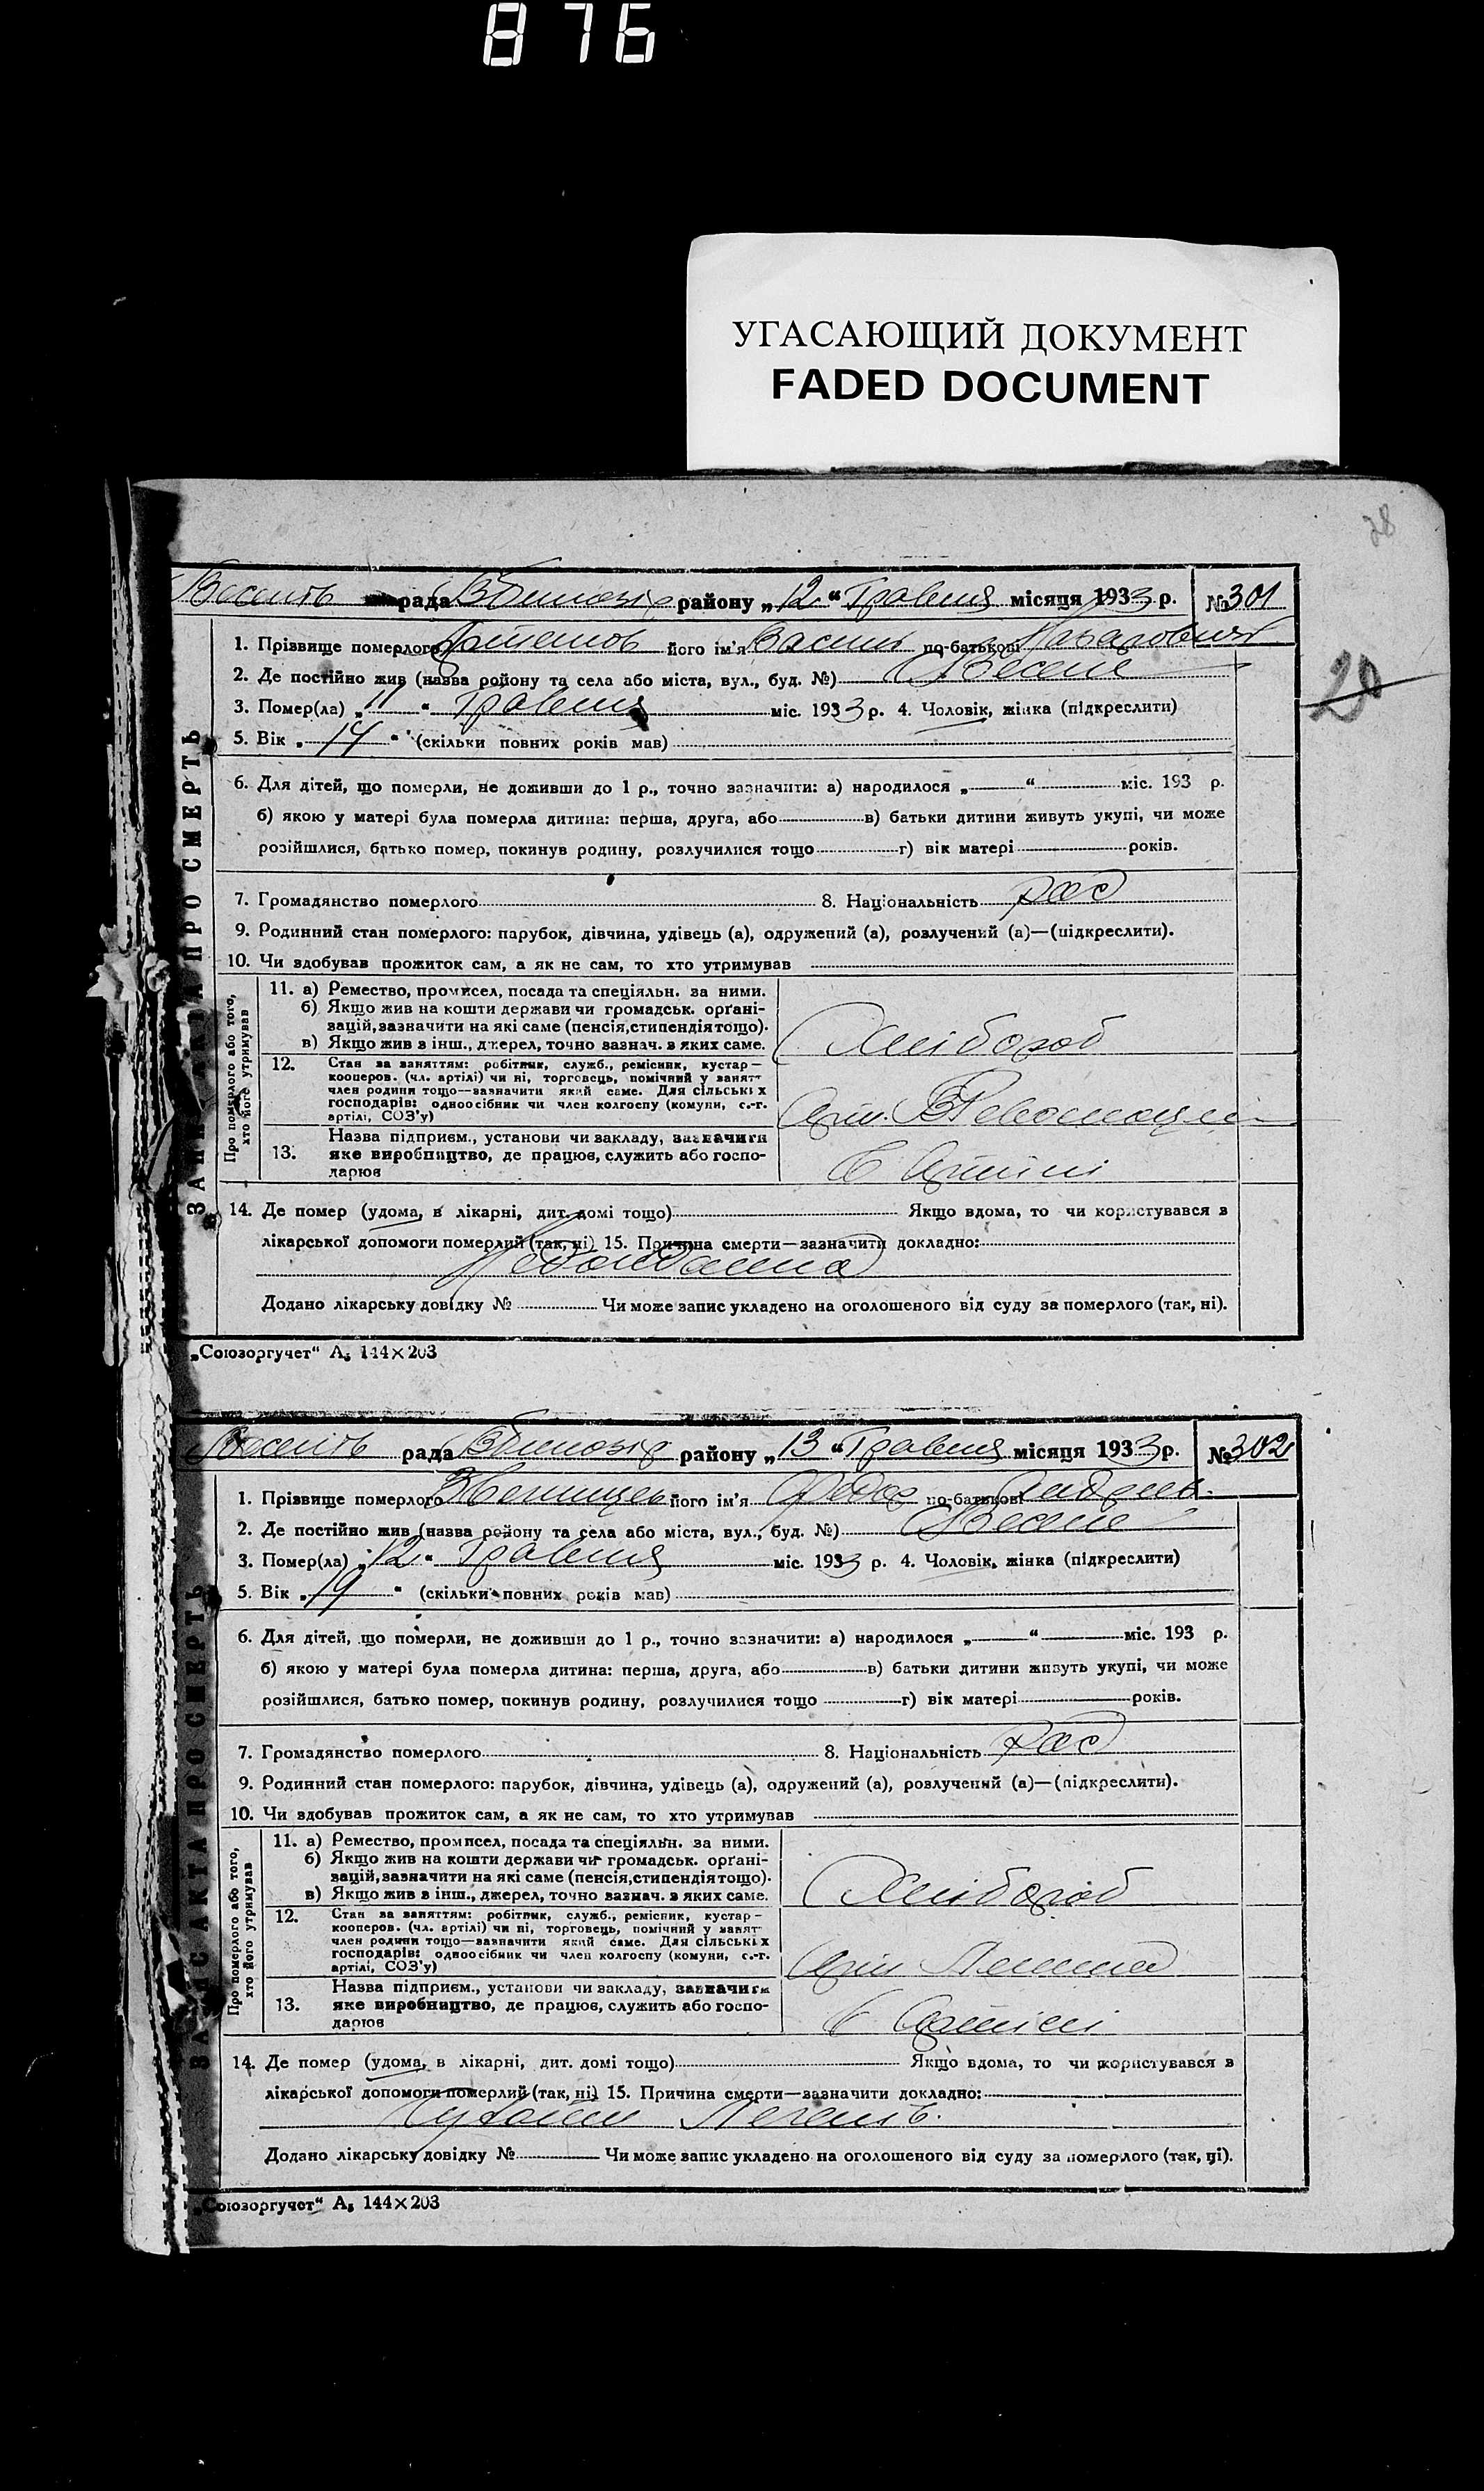 876
УГАСАЮЩИЙ ДОКУМЕНТ
FADED DOCUMENT
28
20
рада району „12“ Травня місяця 1933 р. № 301
1. Прізвище померлого його ім'я Василь по-батькові
2. Де постійно жив (назва району та села або міста, вул., буд. №) Веселе
3. Помер(ла) „11“ Травня міс. 1933 р. 4. Чоловік, жінка (підкреслити)
5. Вік „14“ (скільки повних років мав)
6. Для дітей, що померли, не доживши до 1 р., точно зазначити: а) народилося „ “ міс. 193 р.
б) якою у матері була померла дитина: перша, друга, або в) батьки дитини живуть укупі, чи може
розійшлися, батько помер, покинув родину, розлучилися тощо г) вік матері років.
7. Громадянство померлого 8. Національність рос
9. Родинний стан померлого: парубок, дівчина, удівець (а), одружений (а), розлучений (а)—(підкреслити).
10. Чи здобував прожиток сам, а як не сам, то хто утримував
ЗАПИС АКТА ПРО СМЕРТЬ
Про померлого або того, хто його утримував
11. а) Ремество, промисел, посада та спеціяльн. за ними.
б) Якщо жив на кошти держави чи громадськ. орґані-
зацій, зазначити на які саме (пенсія, стипендія тощо).
в) Якщо жив з інш., джерел, точно зазнач. з яких саме.
Хлібороб
12. Стан за заняттям: робітник, служб., ремісник, кустар—
кооперов. (чл. артілі) чи ні, торговець, помічний у занят-
член родини тощо—зазначити який саме. Для сільських
господарів: одноосібник чи член колгоспу (комуни, с.-г.
артілі, СОЗ'у)
13. Назва підприєм., установи чи закладу, зазначити
яке виробництво, де працює, служить або госпо-
дарює
в Артілі
14. Де помер (удома, в лікарні, дит. домі тощо) Якщо вдома, то чи користувався з
лікарської допомоги померлий (так, ні) 15. Причина смерти—зазначити докладно:
Додано лікарську довідку № Чи може запис укладено на оголошеного від суду за померлого (так, ні).
„Союзоргучет“ А₅ 144×203
рада району „13“ Травня місяця 1933 р. № 302
1. Прізвище померлого його ім'я Федор по-батькові
2. Де постійно жив (назва району та села або міста, вул., буд. №) Веселе
3. Помер(ла) „12“ Травня міс. 1933 р. 4. Чоловік, жінка (підкреслити)
5. Вік „19“ (скільки повних років мав)
6. Для дітей, що померли, не доживши до 1 р., точно зазначити: а) народилося „ “ міс. 193 р.
б) якою у матері була померла дитина: перша, друга, або в) батьки дитини живуть укупі, чи може
розійшлися, батько помер, покинув родину, розлучилися тощо г) вік матері років.
7. Громадянство померлого 8. Національність рос
9. Родинний стан померлого: парубок, дівчина, удівець (а), одружений (а), розлучений (а)—(підкреслити).
10. Чи здобував прожиток сам, а як не сам, то хто утримував
ЗАПИС АКТА ПРО СМЕРТЬ
Про померлого або того, хто його утримував
11. а) Ремество, промисел, посада та спеціяльн. за ними.
б) Якщо жив на кошти держави чи громадськ. орґані-
зацій, зазначити на які саме (пенсія, стипендія тощо).
в) Якщо жив з інш., джерел, точно зазнач. з яких саме.
Хлібороб
12. Стан за заняттям: робітник, служб., ремісник, кустар—
кооперов. (чл. артілі) чи ні, торговець, помічний у занят-
член родини тощо—зазначити який саме. Для сільських
господарів: одноосібник чи член колгоспу (комуни, с.-г.
артілі, СОЗ'у)
Арт Леніна
13. Назва підприєм., установи чи закладу, зазначити
яке виробництво, де працює, служить або госпо-
дарює
в Артілі
14. Де помер (удома, в лікарні, дит. домі тощо) Якщо вдома, то чи користувався з
лікарської допомоги померлий (так, ні) 15. Причина смерти—зазначити докладно:
Легень.
Додано лікарську довідку № Чи може запис укладено на оголошеного від суду за померлого (так, ні).
„Союзоргучет“ А₅ 144×203